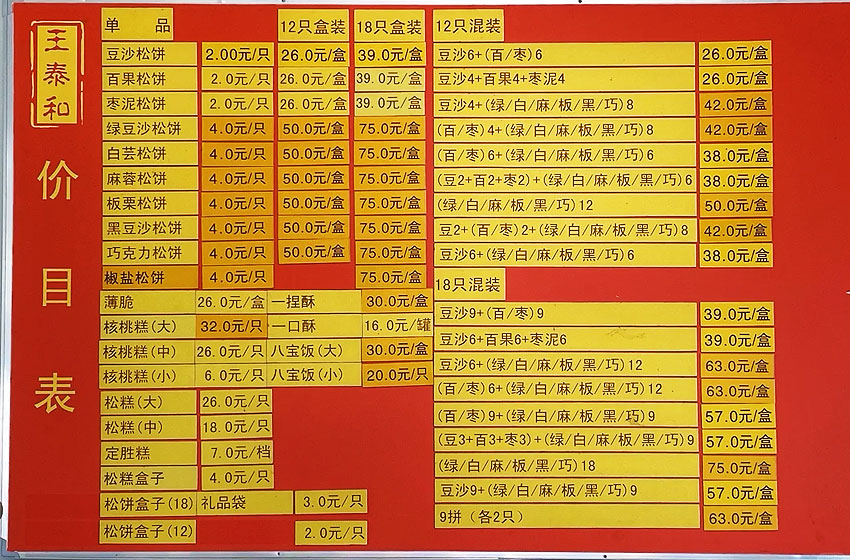 王泰和
价目表
单 品 12只盒装 18只盒装
豆沙松饼 2.00元/只 26.0元/盒 39.0元/盒
百果松饼 2.0元/只 26.0元/盒 39.0元/盒
枣泥松饼 2.0元/只 26.0元/盒 39.0元/盒
绿豆沙松饼 4.0元/只 50.0元/盒 75.0元/盒
白芸松饼 4.0元/只 50.0元/盒 75.0元/盒
麻蓉松饼 4.0元/只 50.0元/盒 75.0元/盒
板栗松饼 4.0元/只 50.0元/盒 75.0元/盒
黑豆沙松饼 4.0元/只 50.0元/盒 75.0元/盒
巧克力松饼 4.0元/只 50.0元/盒 75.0元/盒
椒盐松饼 4.0元/只 75.0元/盒
薄脆 26.0元/盒 一捏酥 30.0元/盒
核桃糕(大) 32.0元/只 一口酥 16.0元/罐
核桃糕(中) 26.0元/只 八宝饭(大) 30.0元/盒
核桃糕(小) 6.0元/只 八宝饭(小) 20.0元/只
松糕(大) 26.0元/只
松糕(中) 18.0元/只
定胜糕 7.0元/档
松糕盒子 4.0元/只
松饼盒子(18) 礼品袋 3.0元/只
松饼盒子(12) 2.0元/只
12只混装
豆沙6+(百/枣)6 26.0元/盒
豆沙4+百果4+枣泥4 26.0元/盒
豆沙4+(绿/白/麻/板/黑/巧)8 42.0元/盒
(百/枣)4+(绿/白/麻/板/黑/巧)8 42.0元/盒
(百/枣)6+(绿/白/麻/板/黑/巧)6 38.0元/盒
(豆2+百2+枣2)+(绿/白/麻/板/黑/巧)6 38.0元/盒
(绿/白/麻/板/黑/巧)12 50.0元/盒
豆2+(百/枣)2+(绿/白/麻/板/黑/巧)8 42.0元/盒
豆沙6+(绿/白/麻/板/黑/巧)6 38.0元/盒
18只混装
豆沙9+(百/枣)9 39.0元/盒
豆沙6+百果6+枣泥6 39.0元/盒
豆沙6+(绿/白/麻/板/黑/巧)12 63.0元/盒
(百/枣)6+(绿/白/麻/板/黑/巧)12 63.0元/盒
(百/枣)9+(绿/白/麻/板/黑/巧)9 57.0元/盒
(豆3+百3+枣3)+(绿/白/麻/板/黑/巧)9 57.0元/盒
(绿/白/麻/板/黑/巧)18 75.0元/盒
豆沙9+(绿/白/麻/板/黑/巧)9 57.0元/盒
9拼（各2只） 63.0元/盒